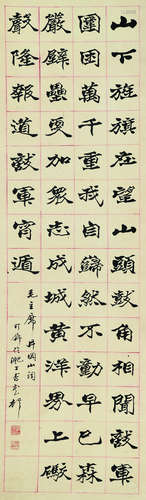 山下旌旗在望山頭鼓角相聞敵軍
圍困萬千重我自巋然不動早已森
嚴壁壘更加衆志成城黃洋界上礮
聲隆報道敵軍宵遁
毛主席井岡山詞